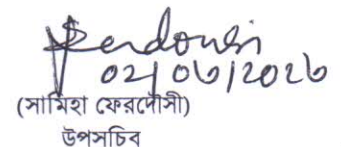 Ferdousi
02/06/2026
(সামিহা ফেরদৌসী)
উপসচিব